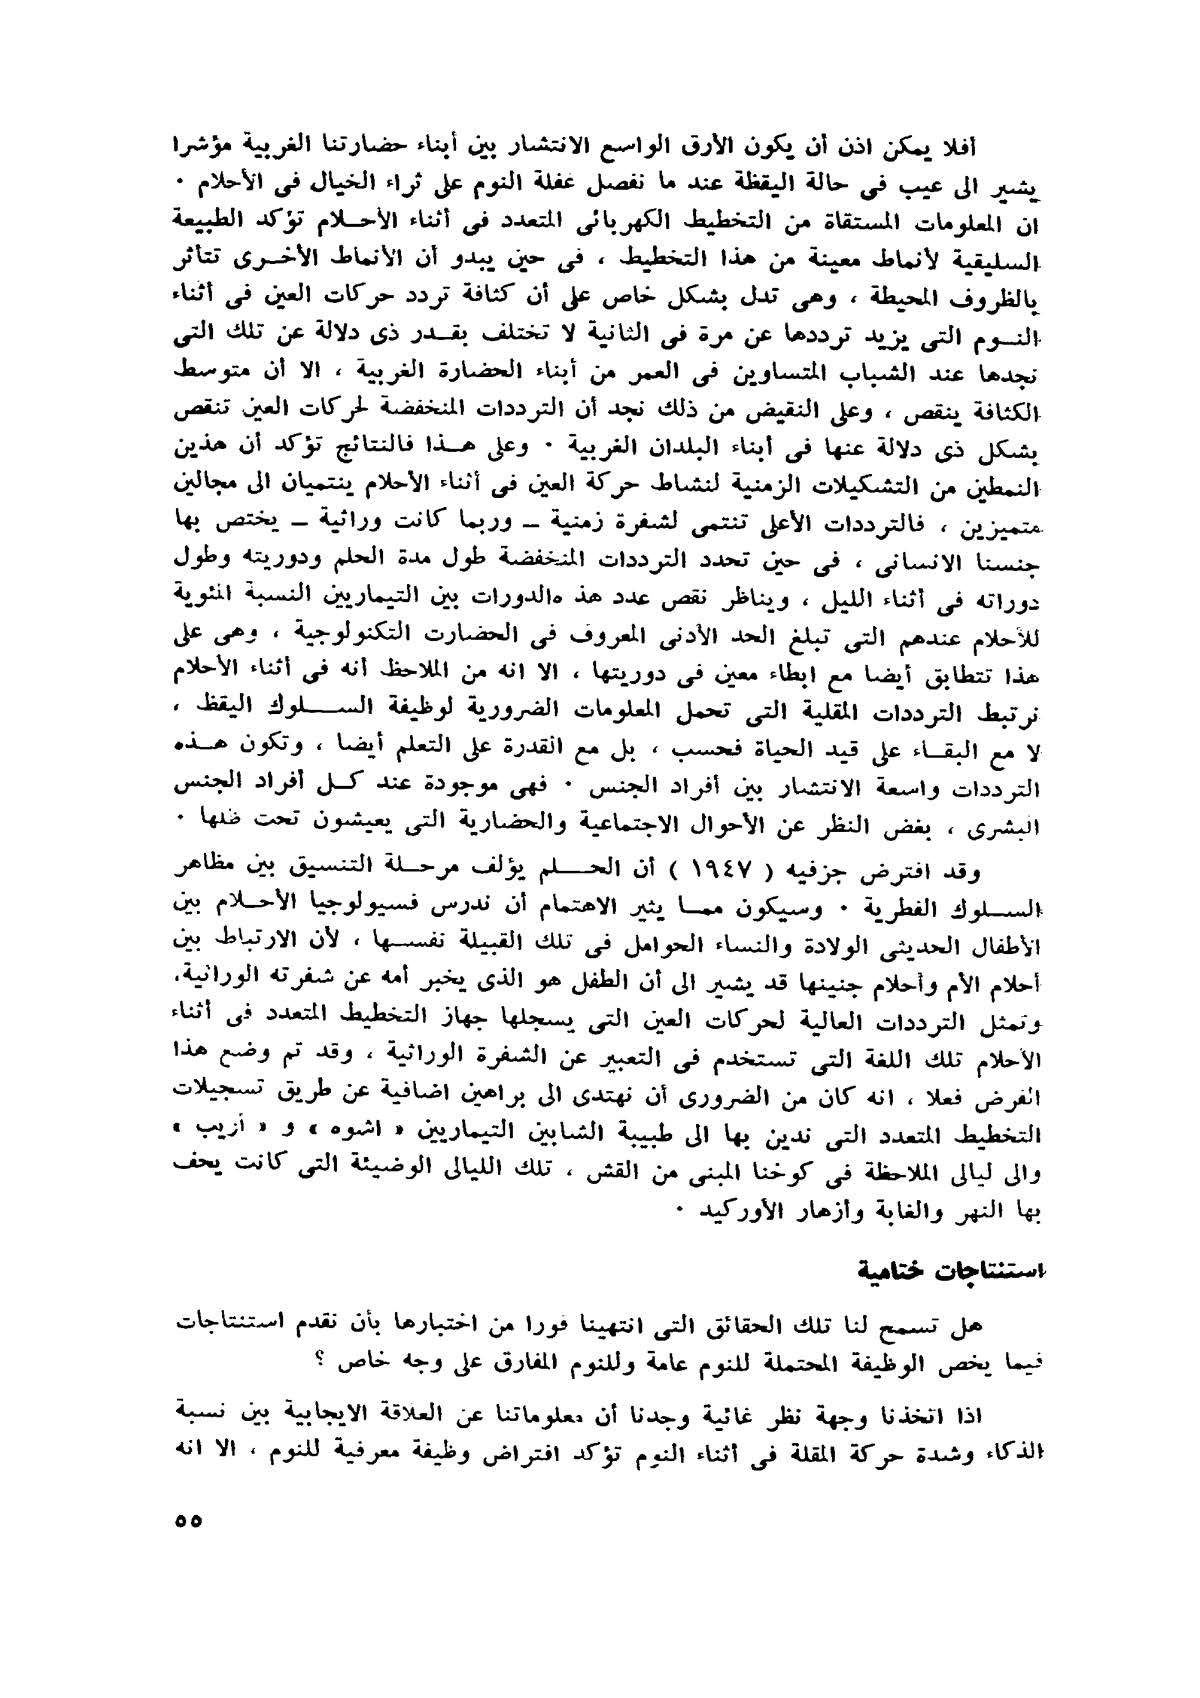 أفلا يمكن اذن أن يكون الأرق الواسع الانتشار بين أبناء حضارتنا الغربية مؤشرا
يشير الى عيب فى حالة اليقظة عند ما نفصل غفلة النوم على ثراء الخيال فى الأحلام ٠
ان المعلومات المستقاة من التخطيط الكهربائى المتعدد فى أثناء الأحــلام تؤكد الطبيعة
السليقية لأنماط معينة من هذا التخطيط ، فى حين يبدو أن الأنماط الأخــرى تتأثر
بالظروف المحيطة ، وهى تدل بشكل خاص على أن كثافة تردد حركات العين فى أثناء
النــوم التى يزيد ترددها عن مرة فى الثانية لا تختلف بقــدر ذى دلالة عن تلك التى
نجدها عند الشباب المتساوين فى العمر من أبناء الحضارة الغربية ، الا أن متوسط
الكثافة ينقص ، وعلى النقيض من ذلك نجد أن الترددات المنخفضة لحركات العين تنقص
بشكل ذى دلالة عنها فى أبناء البلدان الغربية ٠ وعلى هــذا فالنتائج تؤكد أن هذين
النمطين من التشكيلات الزمنية لنشاط حركة العين فى أثناء الأحلام ينتميان الى مجالين
متميزين ، فالترددات الأعلى تنتمى لشفرة زمنية ــ وربما كانت وراثية ــ يختص بها
جنسنا الانسانى ، فى حين تحدد الترددات المنخفضة طول مدة الحلم ودوريته وطول
دوراته فى أثناء الليل ، ويناظر نقص عدد هذ ه‍الدورات بين التيماريين النسبة المئوية
للأحلام عندهم التى تبلغ الحد الأدنى المعروف فى الحضارت التكنولوجية ، وهى على
هذا تتطابق أيضا مع ابطاء معين فى دوريتها ، الا انه من الملاحظ أنه فى أثناء الأحلام
نرتبط الترددات المقلية التى تحمل المعلومات الضرورية لوظيفة الســـلوك اليقظ ،
لا مع البقــاء على قيد الحياة فحسب ، بل مع القدرة على التعلم أيضا ، وتكون هــذه
الترددات واسعة الانتشار بين أفراد الجنس ٠ فهى موجودة عند كــل أفراد الجنس
البشرى ، بغض النظر عن الأحوال الاجتماعية والحضارية التى يعيشون تحت ظلها ٠
وقد افترض جزفيه ( ١٩٤٧ ) أن الحـــلم يؤلف مرحــلة التنسيق بين مظاهر
الســلوك الفطرية ٠ وسيكون ممــا يثير الاهتمام أن ندرس فسيولوجيا الأحــلام بين
الأطفال الحديثى الولادة والنساء الحوامل فى تلك القبيلة نفســها ، لأن الارتباط بين
أحلام الأم وأحلام جنينها قد يشير الى أن الطفل هو الذى يخبر أمه عن شفرته الوراثية،
وتمثل الترددات العالية لحركات العين التى يسجلها جهاز التخطيط المتعدد فى أثناء
الأحلام تلك اللغة التى تستخدم فى التعبير عن الشفرة الوراثية ، وقد تم وضع هذا
الفرض فعلا ، انه كان من الضرورى أن نهتدى الى براهين اضافية عن طريق تسجيلات
التخطيط المتعدد التى ندين بها الى طبيبة الشابين التيماريين « اشوه » و « أزيب »
والى ليالى الملاحظة فى كوخنا المبنى من القش ، تلك الليالى الوضيئة التى كانت يحف
بها النهر والغابة وأزهار الأوركيد ٠
استنتاجات ختامية
هل تسمح لنا تلك الحقائق التى انتهينا فورا من اختبارها بأن نقدم استنتاجات
فيما يخص الوظيفة المحتملة للنوم عامة وللنوم المفارق على وجه خاص ؟
اذا اتخذنا وجهة نظر غائية وجدنا أن معلوماتنا عن العلاقة الايجابية بين نسبة
الذكاء وشدة حركة المقلة فى أثناء النوم تؤكد افتراض وظيفة معرفية للنوم ، الا انه
٥٥